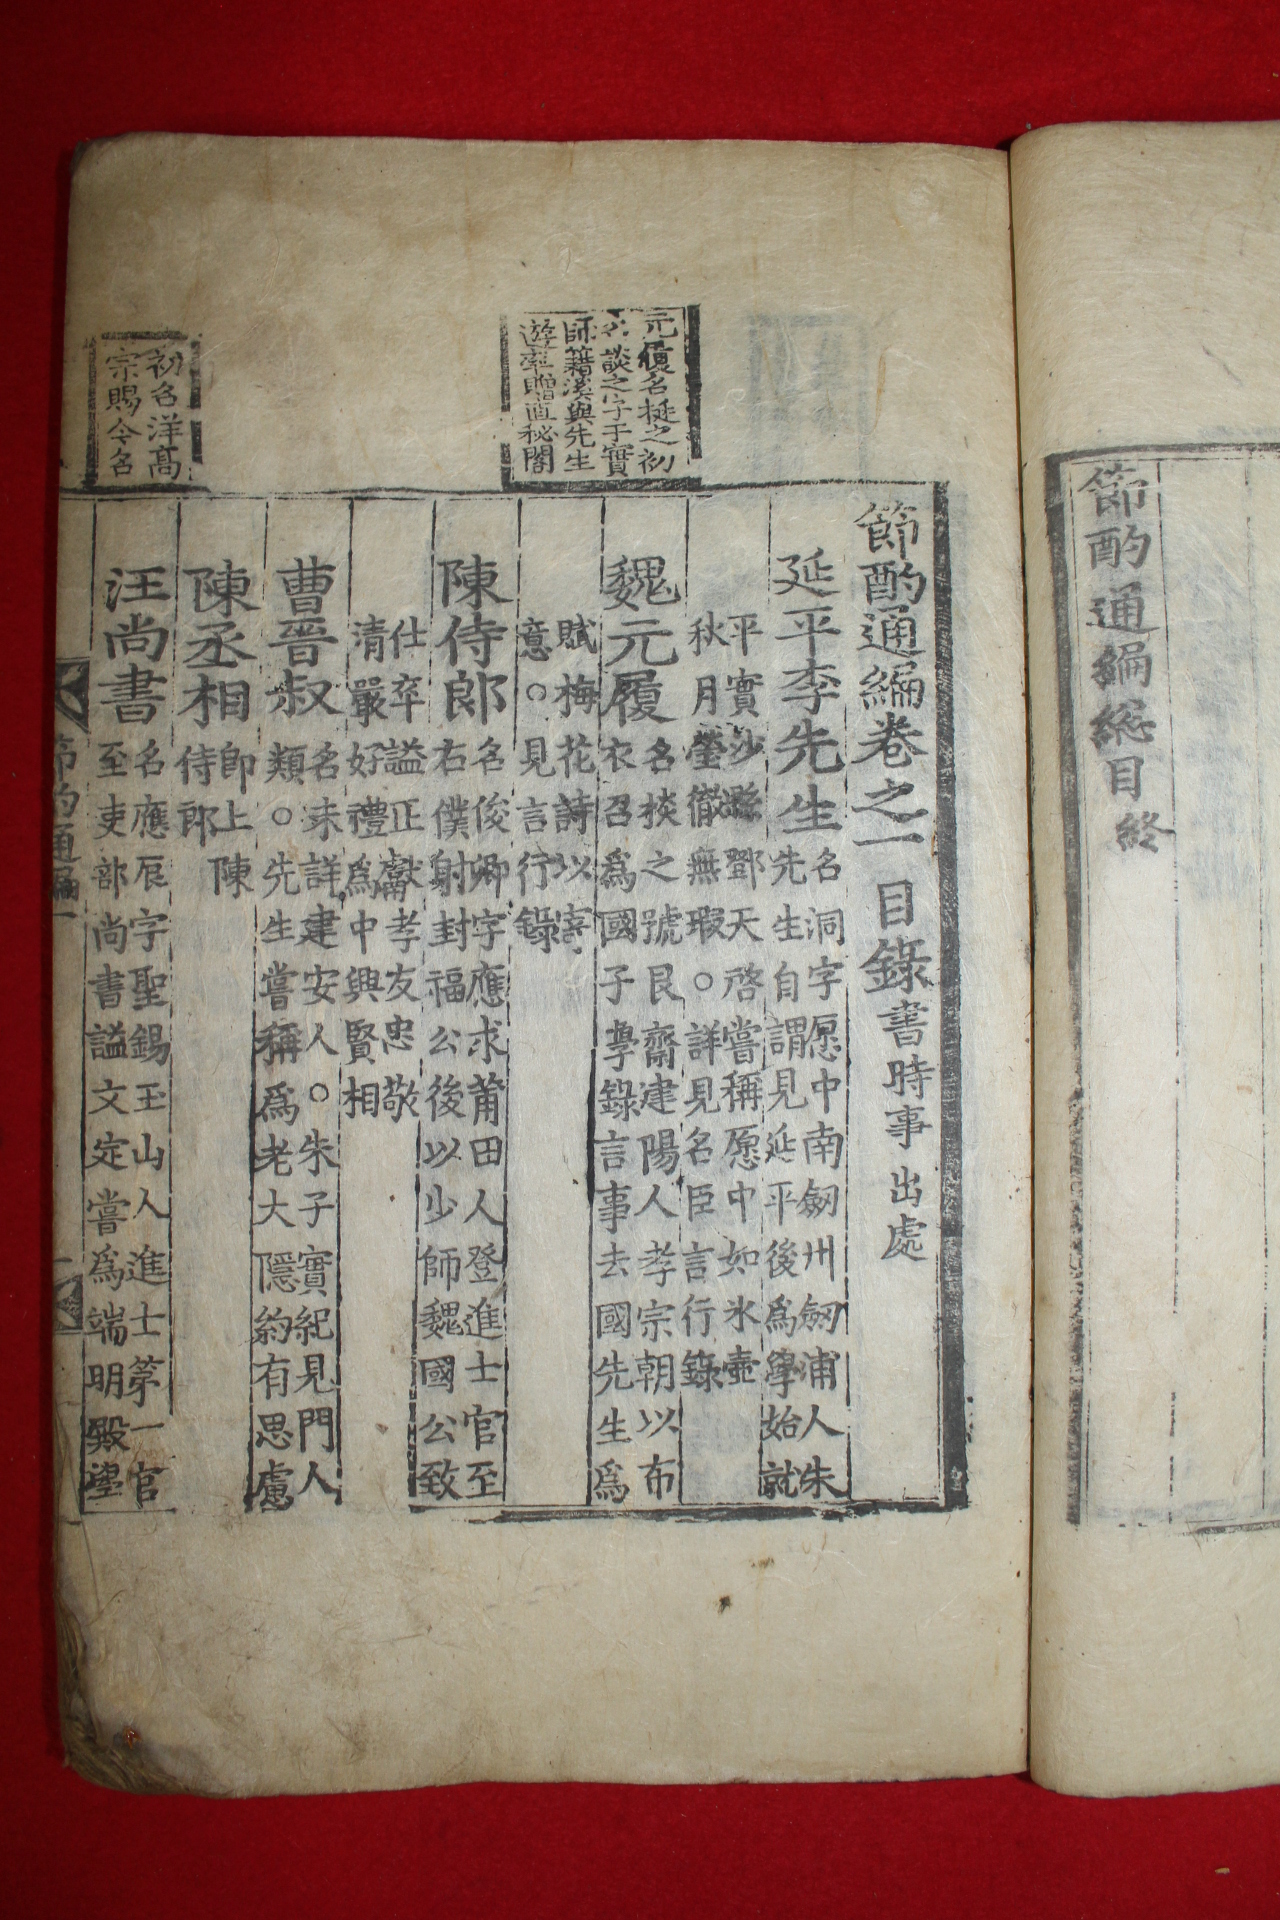 節酌通編総目終
節酌通編卷之一 目錄 書時事出處
延平李先生 名洞字愿中南劒州劒浦人朱
先生自謂見延平後爲學始就
平實沙縣鄧天啓嘗稱愿中如氷壺
秋月瑩徹無瑕○詳見名臣言行錄
魏元履 名掞之號艮齋建陽人孝宗朝以布
衣召爲國子學錄言事去國先生爲
賦梅花詩以寄
意○見言行錄
陳侍郎 名俊卿字應求莆田人登進士官至
右僕射封福公後以少師魏國公致
仕卒謚正獻孝友忠敬
清嚴好禮爲中興賢相
曹晋叔 名未詳建安人○朱子實紀見門人
類○先生嘗稱爲老大隱約有思慮
陳丞相 卽上陳
侍郎
汪尚書 名應辰字聖錫玉山人進士第一官
至吏部尚書謚文定嘗爲端明殿望
元履名挺之初
名掞之字子實
師籍溪與先生
遊卒贈直秘閣
初名洋高
宗賜今名
節酌通編一